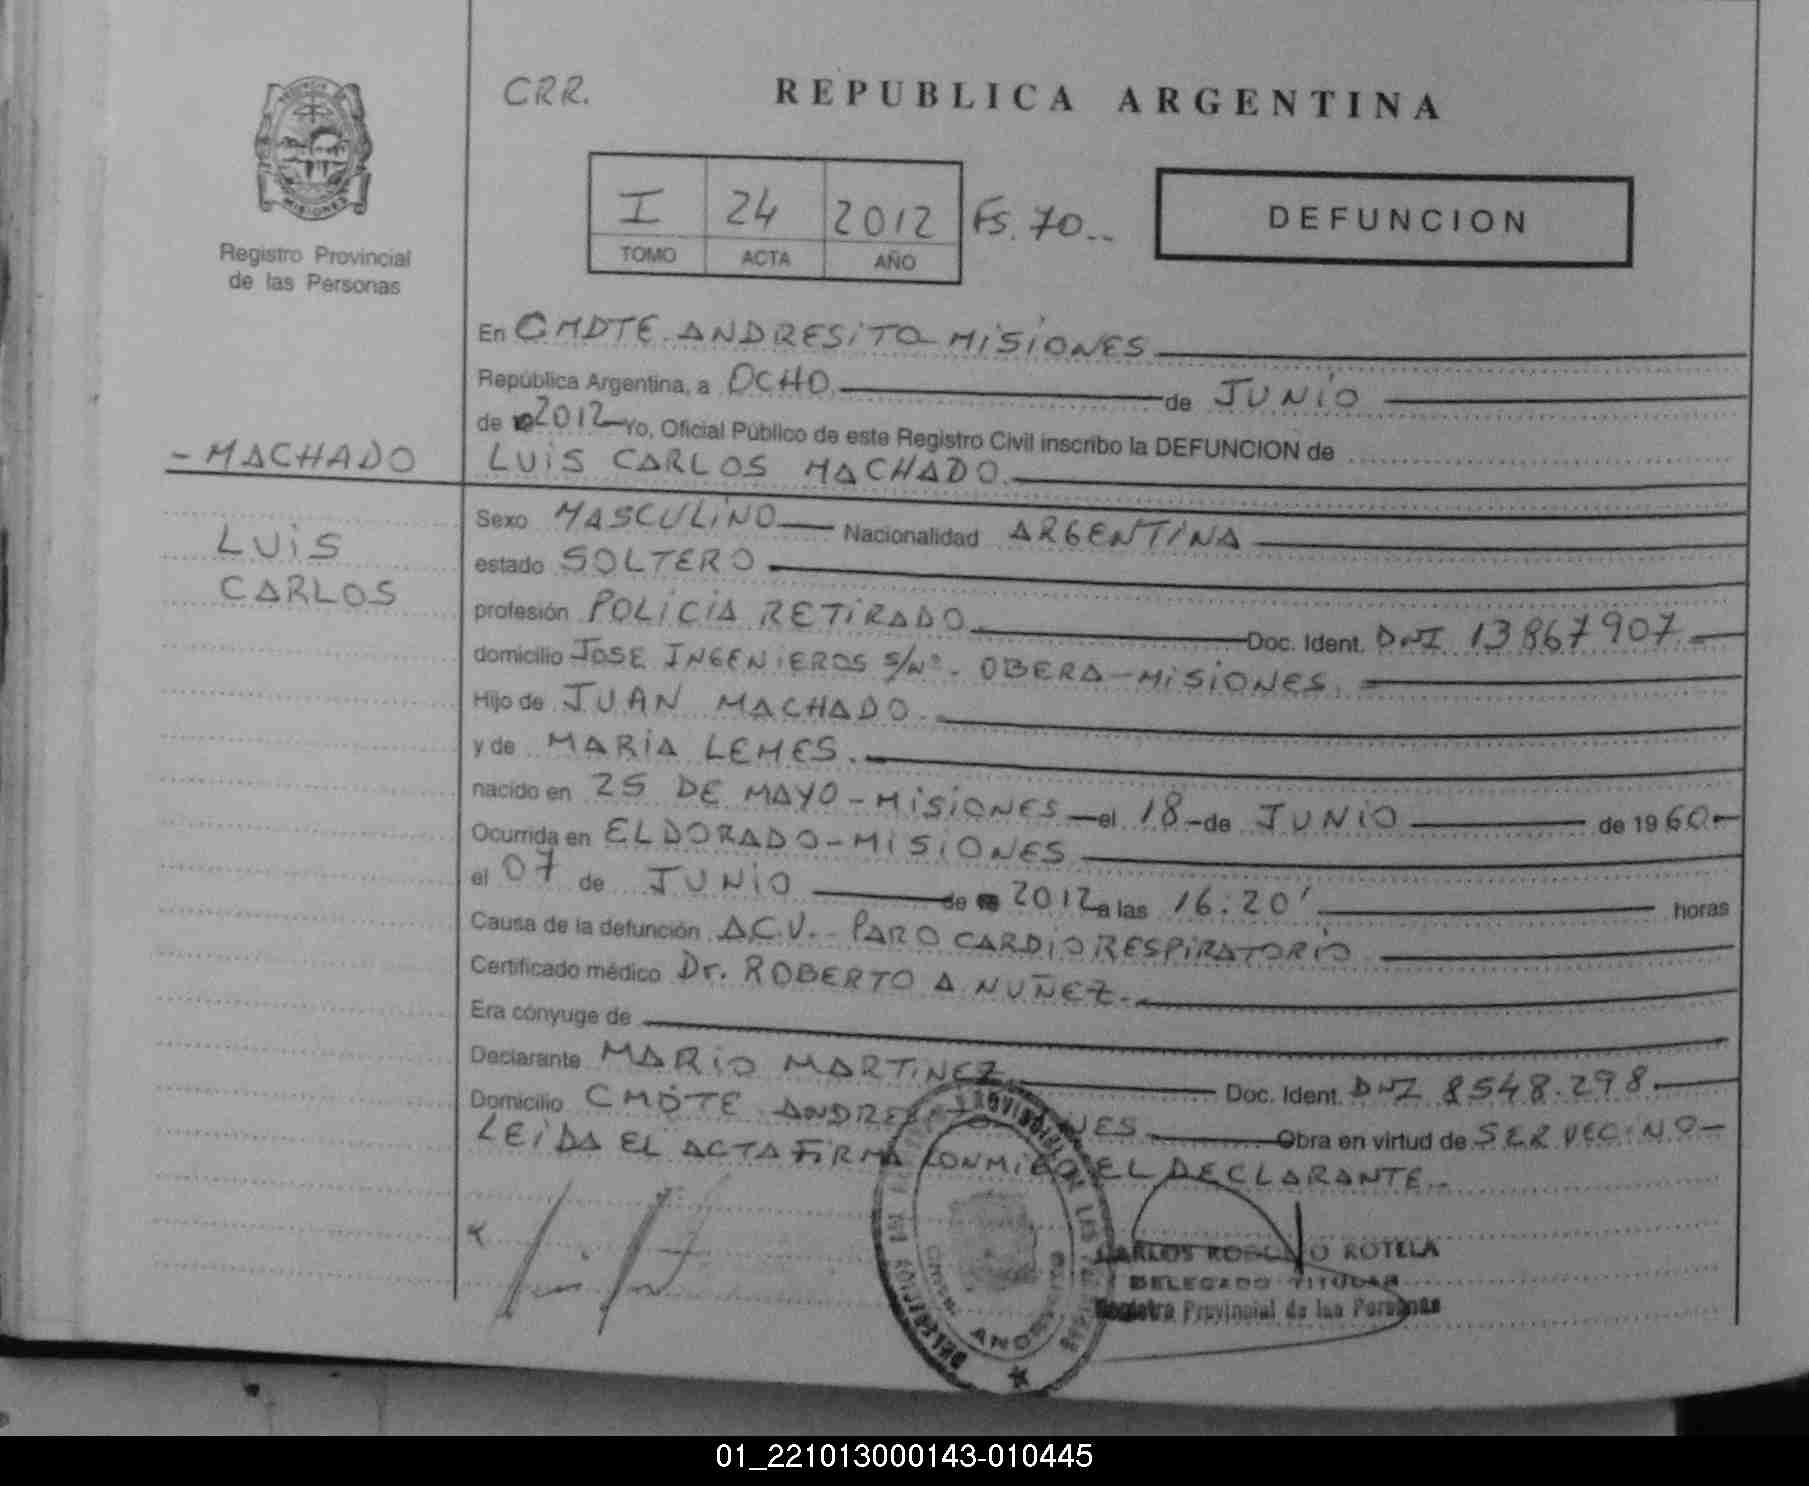 CRR.
REPUBLICA ARGENTINA
I 24 2012 Fs. 70
TOMO ACTA AÑO
DEFUNCION
MISIONES
Registro Provincial
de las Personas
En CMDTE ANDRESITO MISIONES
República Argentina, a OCHO de JUNIO
de 2012 Yo, Oficial Público de este Registro Civil inscribo la DEFUNCION de
LUIS CARLOS MACHADO.
- MACHADO
LUIS
CARLOS
Sexo MASCULINO Nacionalidad ARGENTINA
estado SOLTERO
profesión POLICIA RETIRADO Doc. Ident. DNI 13867907
domicilio JOSE INGENIEROS S/Nº - OBERA - MISIONES.
Hijo de JUAN MACHADO.
y de MARIA LEMES.
nacido en 25 DE MAYO - MISIONES el 18 de JUNIO de 1960
Ocurrida en ELDORADO - MISIONES
el 07 de JUNIO de 2012 a las 16:20' horas
Causa de la defunción A.C.V. - PARO CARDIORESPIRATORIO
Certificado médico Dr. ROBERTO A NUÑEZ.
Era cónyuge de
Declarante MARIO MARTINEZ Doc. Ident. DNI 8548.298
Domicilio CMDTE Obra en virtud de SER VECINO
LEIDA EL ACTA FIRMA CONMIGO EL DECLARANTE.
CARLOS ROTELA
DELEGADO TITULAR
Registro Provincial de las Personas
01_221013000143-010445